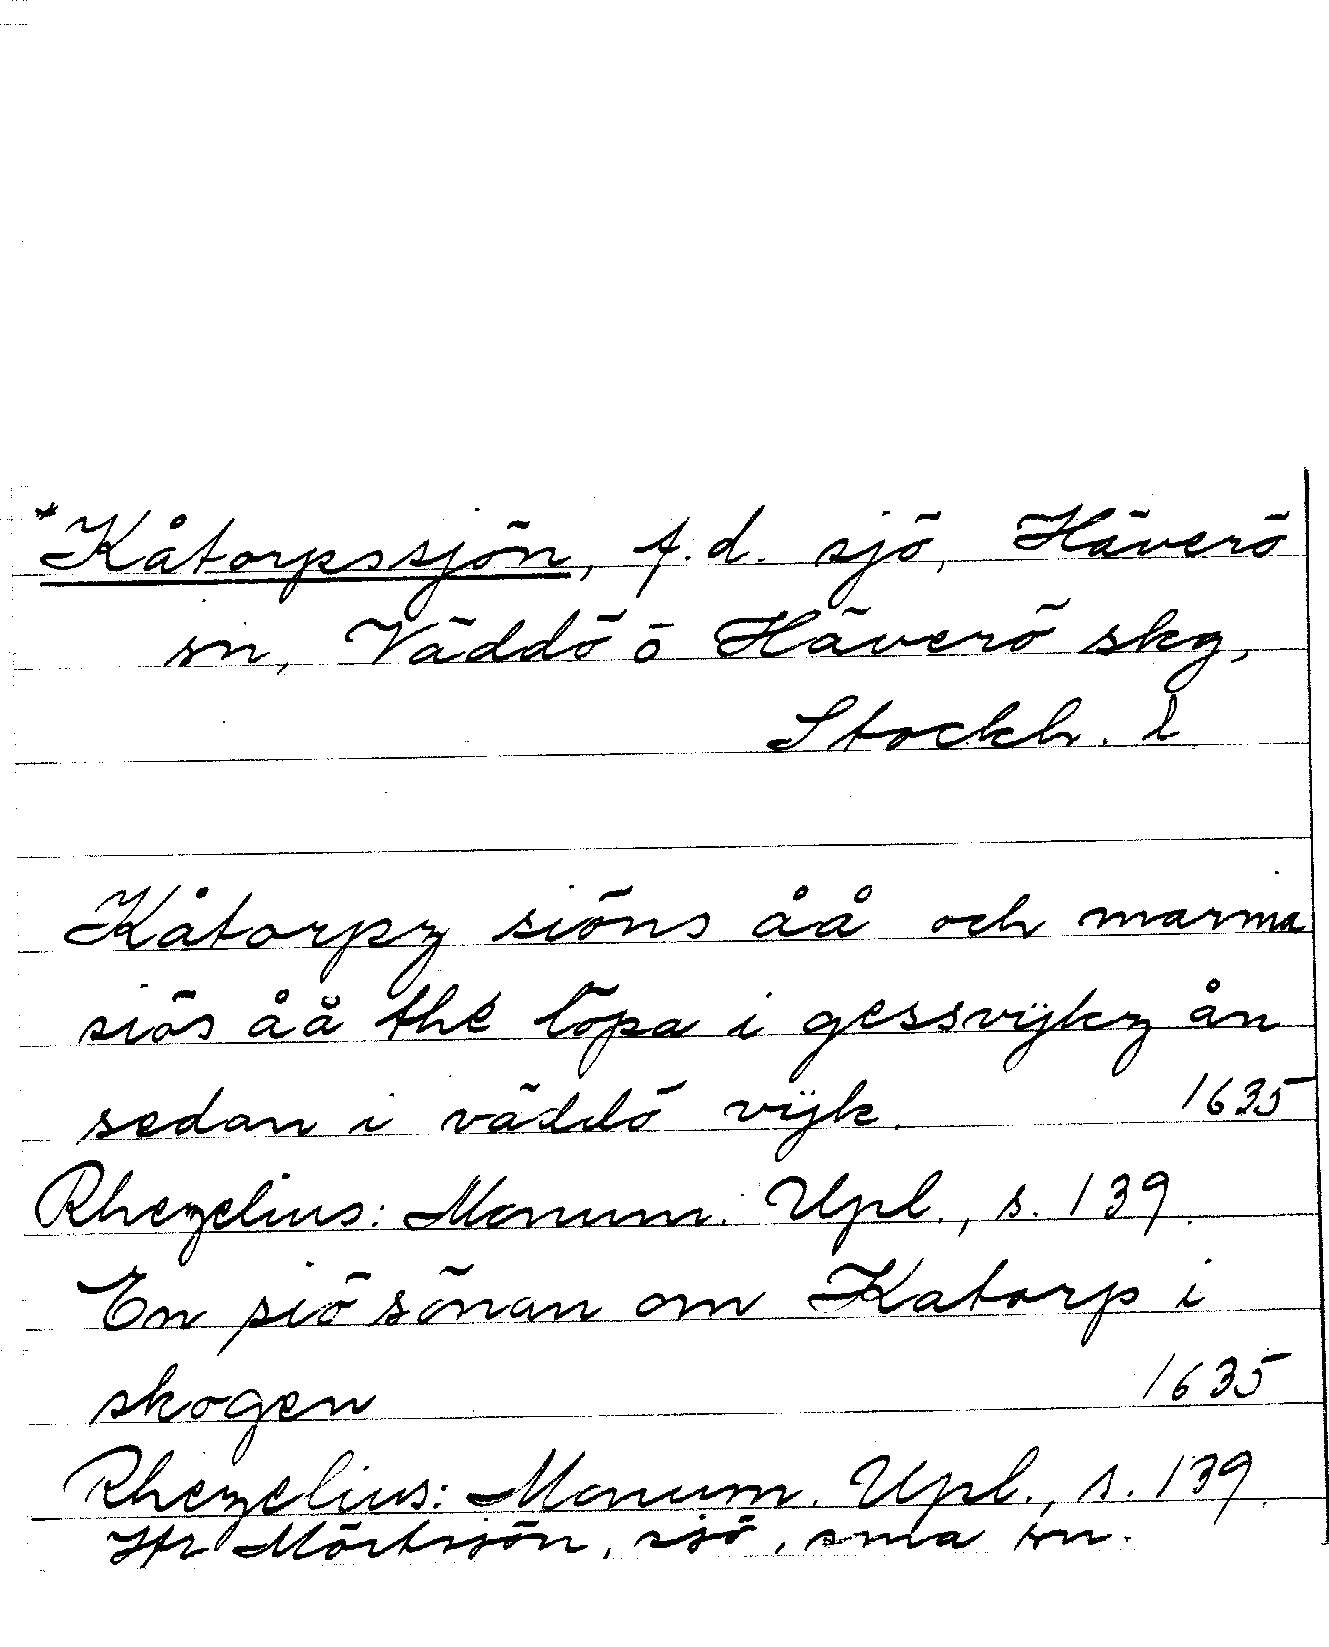 *Kåtorpssjön, f.d. sjö, Häverö
sn, Väddö o Häverö skg,
Stockh. l
Kåtorpz siöns åå och marma
siös åå the löpa i gessvijkz ån
sedan i väddö vijk. 1635
Rhezelius: Monum. Upl., s. 139.
En siö sönan om Katorp i
skogen 1635
Rhezelius: Monum. Upl., s. 139.
Jfr Mörtsjön, sjö, sma sn.